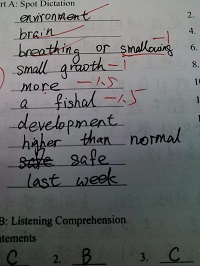 rt A: Spot Dictation
environment
2.
brain
4.
-1
breathing or smallowing
6.
small growth -1
8.
more -1.5
a fishal -1.5
development
higher than normal
safe
last week
B: Listening Comprehension
tements
C 2. B 3. C